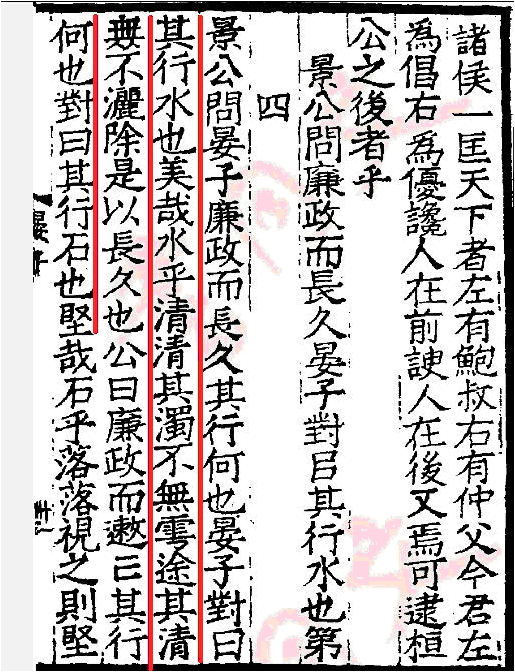 諸侯一匡天下者左有鮑叔右有仲父今君左
為倡右為優讒人在前諛人在後又焉可逮桓
公之後者乎
景公問廉政而長久晏子對曰其行水也第
四
景公問晏子廉政而長久其行何也晏子對曰
其行水也美哉水乎清清其濁不無雩途其清
無不灑除是以長久也公曰廉政而遬亡其行
何也對曰其行石也堅哉石乎落落視之則堅